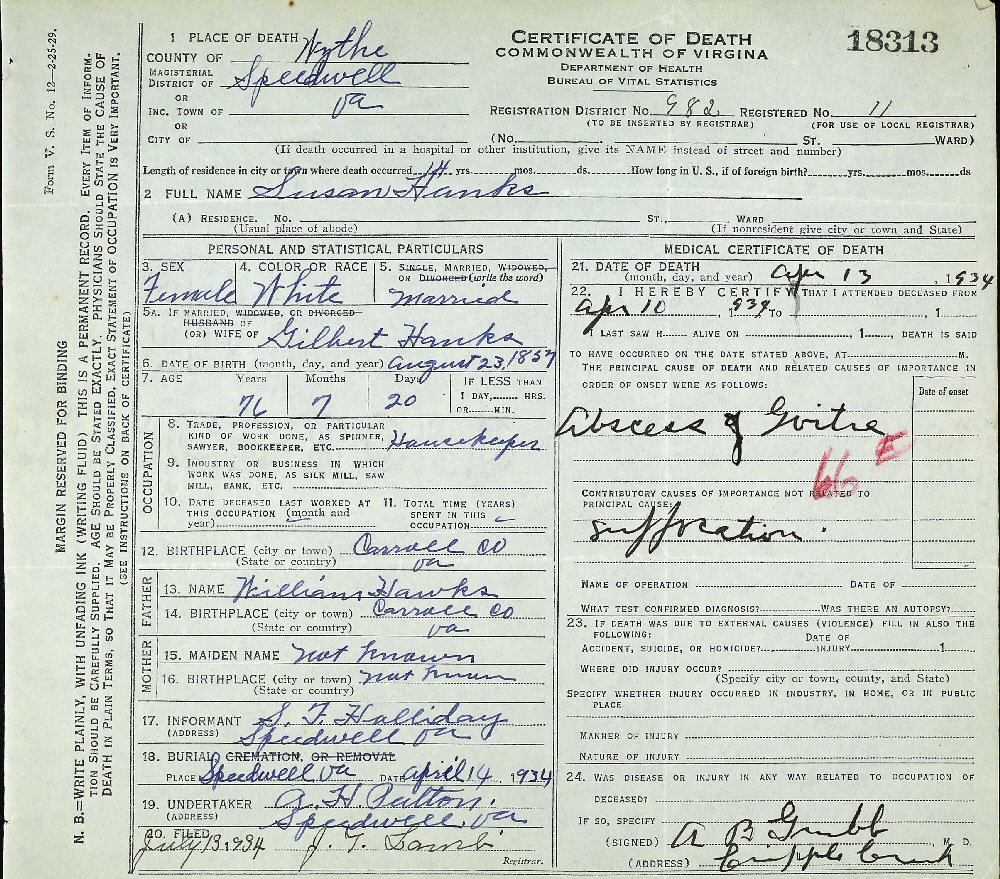 Form V. S. No. 12—2-25-29.
MARGIN RESERVED FOR BINDING
N. B.=WRITE PLAINLY, WITH UNFADING INK (WRITING FLUID). THIS IS A PERMANENT RECORD. EVERY ITEM OF INFORM-
TION SHOULD BE CAREFULLY SUPPLIED. AGE SHOULD BE STATED EXACTLY. PHYSICIANS SHOULD STATE THE CAUSE OF
DEATH IN PLAIN TERMS, SO THAT IT MAY BE PROPERLY CLASSIFIED. EXACT STATEMENT OF OCCUPATION IS VERY IMPORTANT.
(SEE INSTRUCTIONS ON BACK OF CERTIFICATE)
CERTIFICATE OF DEATH
COMMONWEALTH OF VIRGINA
DEPARTMENT OF HEALTH
BUREAU OF VITAL STATISTICS
18313
1 PLACE OF DEATH
COUNTY OF Wythe
MAGISTERIAL
DISTRICT OF Speedwell
OR
INC. TOWN OF Va
OR
CITY OF
REGISTRATION DISTRICT No. 982 REGISTERED No. 11
(TO BE INSERTED BY REGISTRAR) (FOR USE OF LOCAL REGISTRAR)
(No. ST. WARD)
(If death occurred in a hospital or other institution, give its NAME instead of street and number)
Length of residence in city or town where death occurred 14 yrs. mos. ds. How long in U. S., if of foreign birth? yrs. mos. ds
2 FULL NAME Susan Hanks
(A) RESIDENCE. No. ST., WARD
(Usual place of abode) (If nonresident give city or town and State)
PERSONAL AND STATISTICAL PARTICULARS
3. SEX 4. COLOR OR RACE 5. SINGLE, MARRIED, WIDOWED,
OR DIVORCED (write the word)
Female White Married
5A. IF MARRIED, WIDOWED, OR DIVORCED
HUSBAND OF
(OR) WIFE OF Gilbert Hanks
6. DATE OF BIRTH (month, day, and year) August 23, 1857
7. AGE Years Months Days IF LESS THAN
1 DAY, HRS.
OR MIN.
76 7 20
OCCUPATION
8. TRADE, PROFESSION, OR PARTICULAR
KIND OF WORK DONE, AS SPINNER,
SAWYER, BOOKKEEPER, ETC. Housekeeper
9. INDUSTRY OR BUSINESS IN WHICH
WORK WAS DONE, AS SILK MILL, SAW
MILL, BANK, ETC.
10. DATE DECEASED LAST WORKED AT 11. TOTAL TIME (YEARS)
THIS OCCUPATION (month and SPENT IN THIS
year) OCCUPATION
12. BIRTHPLACE (city or town) Carroll Co
(State or country) Va
FATHER
13. NAME William Hawks
14. BIRTHPLACE (city or town) Carroll Co
(State or country) Va
MOTHER
15. MAIDEN NAME Not known
16. BIRTHPLACE (city or town) Not known
(State or country)
17. INFORMANT S. F. Halliday
(ADDRESS) Speedwell Va
18. BURIAL, CREMATION, OR REMOVAL
PLACE Speedwell Va DATE April 14 1934
19. UNDERTAKER A. H. Pulton.
(ADDRESS) Speedwell, Va
20. FILED
July 13, 1934 J. T. Lamb
Registrar.
MEDICAL CERTIFICATE OF DEATH
21. DATE OF DEATH
(month, day, and year) Apr 13, 1934
22. I HEREBY CERTIFY THAT I ATTENDED DECEASED FROM
Apr 10, 1934 TO , 1
I LAST SAW H ALIVE ON , 1 , DEATH IS SAID
TO HAVE OCCURRED ON THE DATE STATED ABOVE, AT M.
THE PRINCIPAL CAUSE OF DEATH AND RELATED CAUSES OF IMPORTANCE IN
ORDER OF ONSET WERE AS FOLLOWS:
Date of onset
Abscess of Goitre
66
CONTRIBUTORY CAUSES OF IMPORTANCE NOT RELATED TO
PRINCIPAL CAUSE:
Suffocation.
NAME OF OPERATION DATE OF
WHAT TEST CONFIRMED DIAGNOSIS? WAS THERE AN AUTOPSY?
23. IF DEATH WAS DUE TO EXTERNAL CAUSES (VIOLENCE) FILL IN ALSO THE
FOLLOWING: DATE OF
ACCIDENT, SUICIDE, OR HOMICIDE? INJURY 1
WHERE DID INJURY OCCUR?
(Specify city or town, county, and State)
SPECIFY WHETHER INJURY OCCURRED IN INDUSTRY, IN HOME, OR IN PUBLIC
PLACE
MANNER OF INJURY
NATURE OF INJURY
24. WAS DISEASE OR INJURY IN ANY WAY RELATED TO OCCUPATION OF
DECEASED?
IF SO, SPECIFY
(SIGNED) A B Grubb, M. D.
(ADDRESS) Cripple Creek